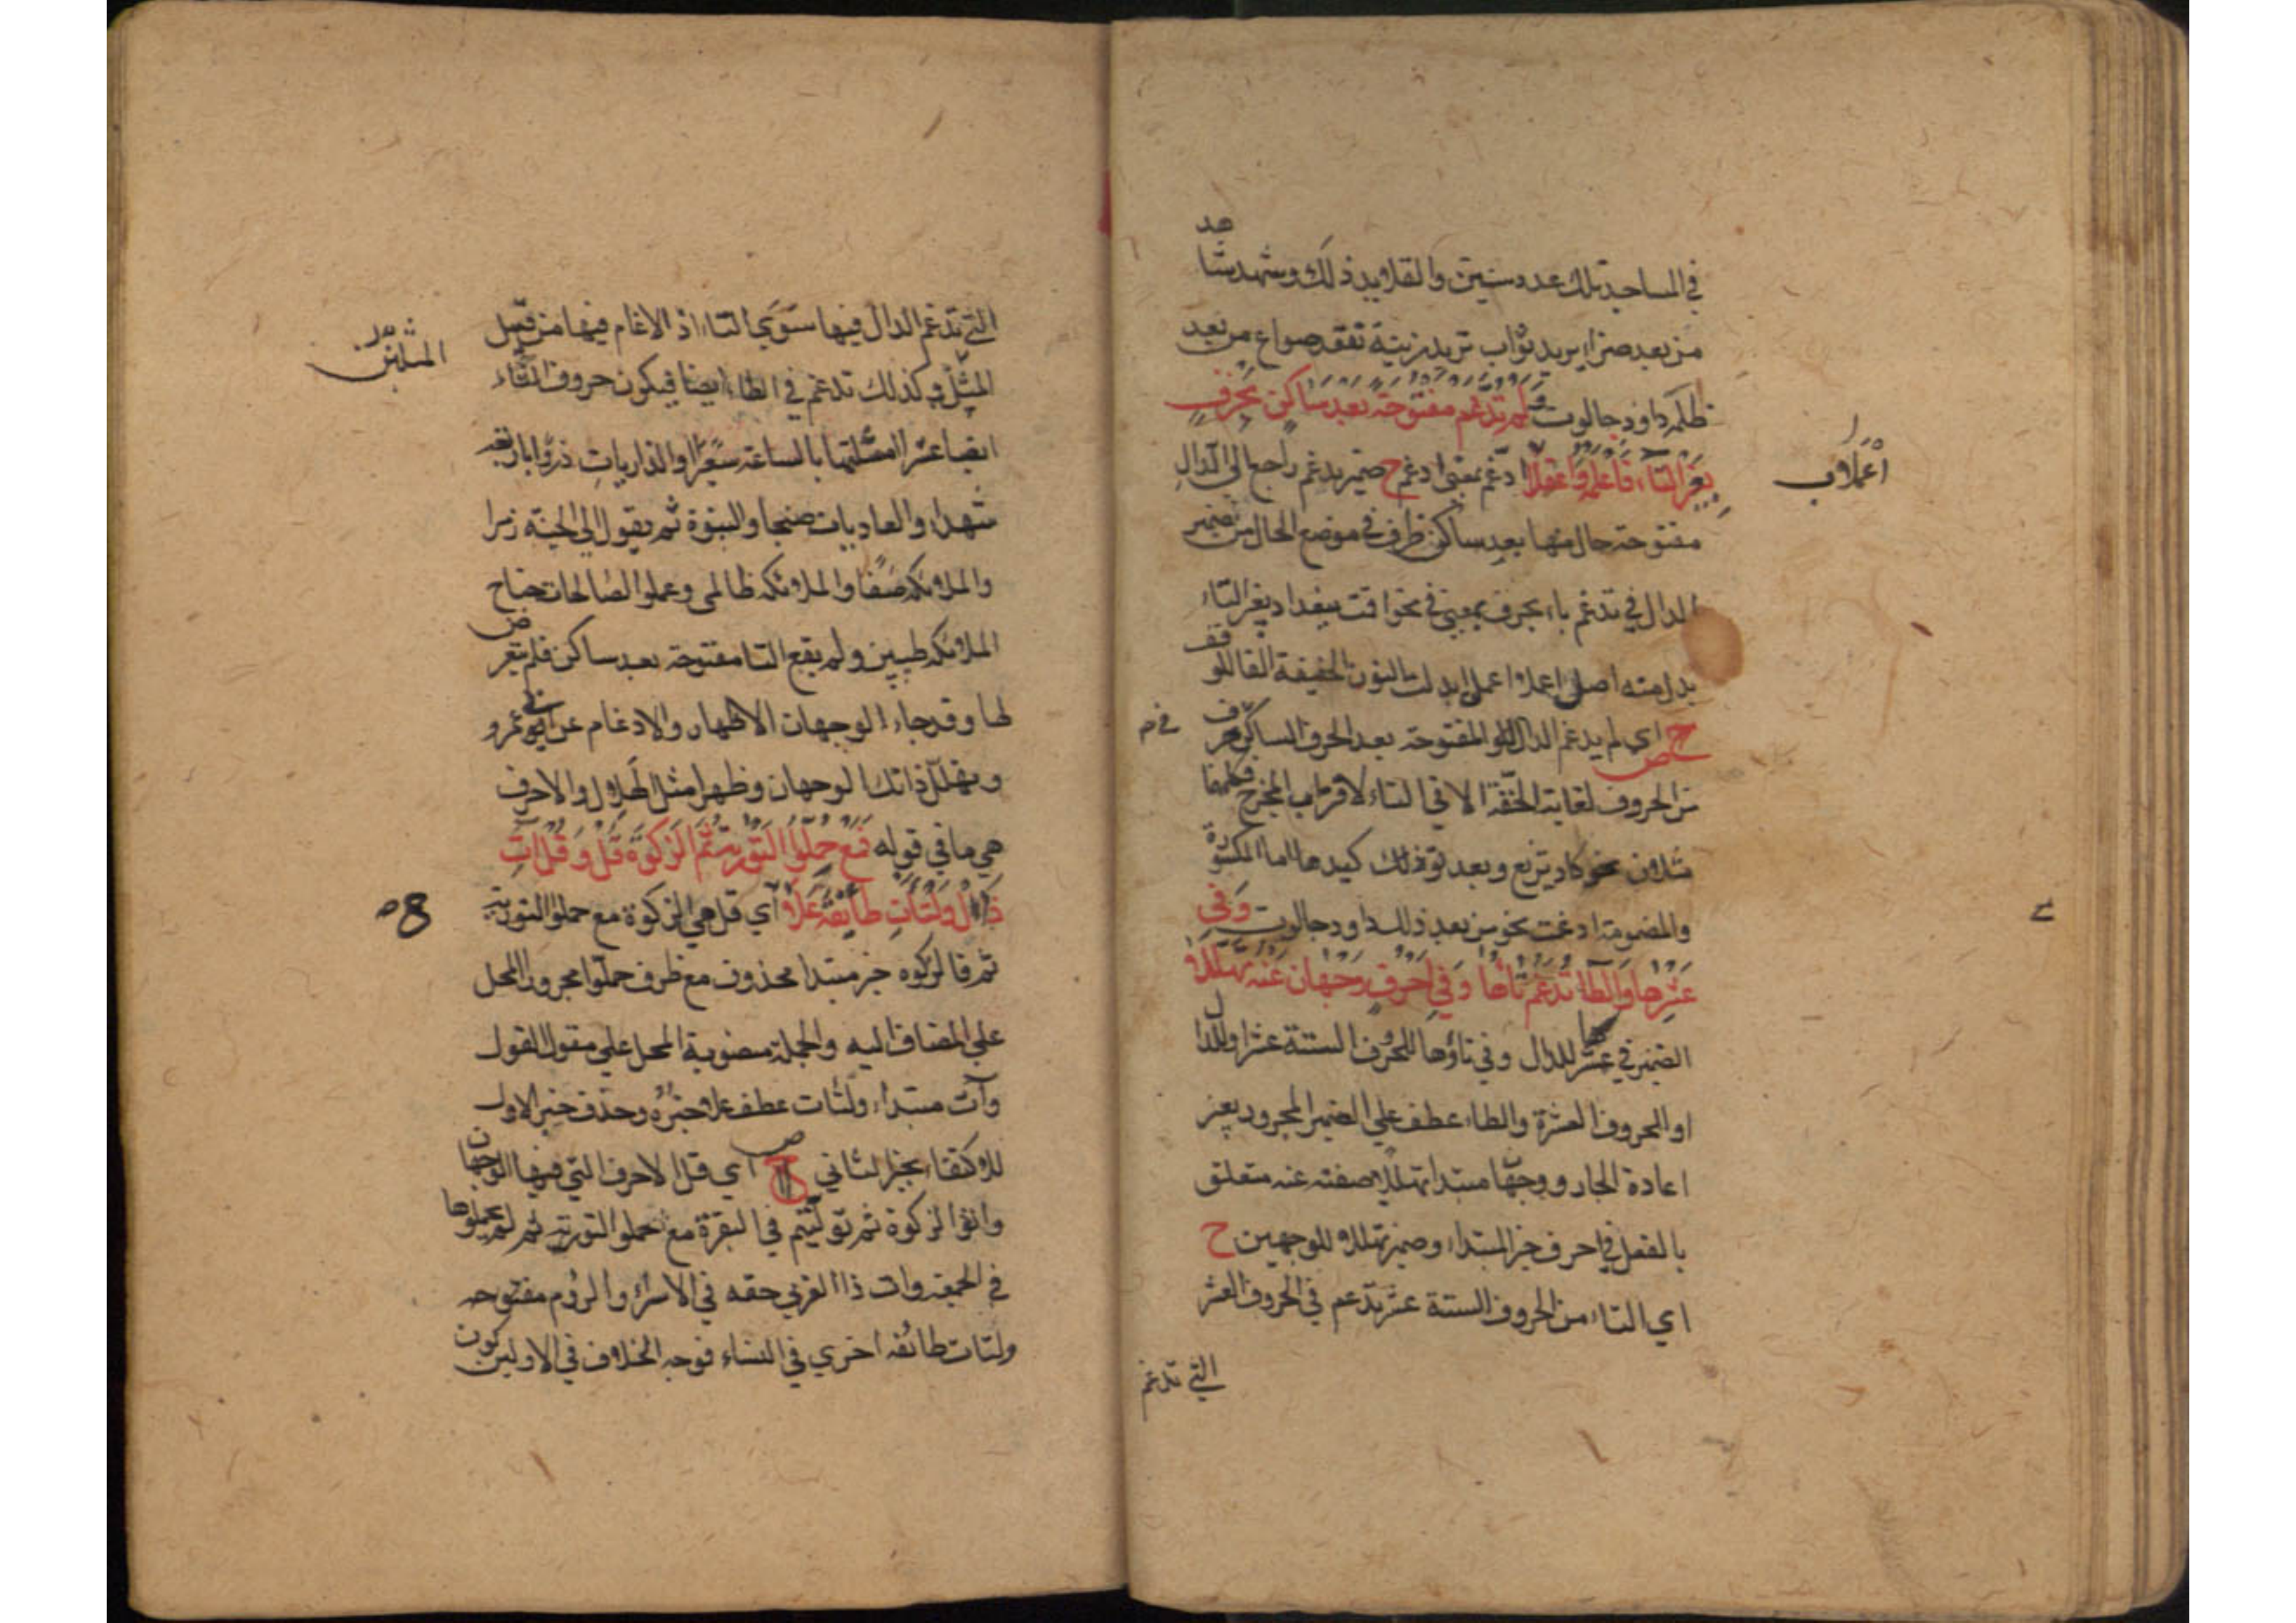 في المساجد تلك عدد سنين والقلايد ذلك وشهد شا
هد
من بعد ضراء يريد ثواب تريد زينة تفقد صواع من بعد
ظلمه داود جالوت ولم تدغم مفتوحة بعد ساكن بحرف
بغير التاء فاعلمه واعملا ادغم بمعنى ادغم ح ضمير يدغم راجع الى الدال
اعملا
مفتوحة حال منها بعد ساكن ظرف في موضع الحال من ضمير
الدال في تدغم باء بحرف بمعنى في نحو اقمت ببغداد بغير التاء
بدل منه اصل اعملا اعملن ابدلت النون الخفيفة الفا للو
قف
ح اي لم يدغم الدال المفتوحة بعد الحرف الساكن في حر
ف
ص
من الحروف لغاية الخفة الا في التاء لاقتراب المخرج
مثلان نحو كاد يزيغ وبعد توكيدها اما المكسورة
والمضمومة ادغمت نحو من بعد ذلك داود جالوت وفي
عشرها والطاء تدغم تاؤها وفي احرف وجهان عنه تهللا
الضمير في عشرها للدال وفي تاؤها للحروف الستة عشر او للدا
ل
او للحروف العشرة والطاء عطف على الضمير المجرور بغير
اعادة الجار ووجهان مبتدا تهللا صفته عنه متعلق
بالفعل في احرف خبر المبتداء وضمير تهللا للوجهين ح
اي التاء من الحروف الستة عشر تدغم في الحروف العشر
التي تدغم
التي تدغم الدال فيها سوى التاء اذ الادغام فيها من قبيل
المثلين
المثل وكذلك تدغم في الطاء ايضا فيكون حروف التاء
ايضا عشرا امثلتها بالساعة سعيرا والذاريات ذروا باربعة
شهداء والعاديات ضبحا والنبوة ثم يقول الى الجنة زمرا
والملائكة صفا والملائكة ظالمي وعملوا الصالحات جناح
الملائكة طيبين ولم يقع التا مفتوحة بعد ساكن فلم يتعر
ض
لها وقد جاء الوجهان الاظهار والادغام عن ابي عمرو
في
وتهلل ذانك الوجهان وظهرا مثل الهلال والاحرف
هي ما في قوله فمع حملوا التورية ثم الزكوة قل وقل ات
ذا ال ولتات طائفة علا اي قل هي الزكوة مع حملوا التورية
ثم فالزكوة خبر مبتدا محذوف مع ظرف حملوا مجرور المحل
على المضاف اليه والجملة منصوبة المحل على مقول القول
وآت مبتداء ولتات عطف علا خبره وحذف خبر الاول
للاكتفاء بخبر الثاني ح اي قل الاحرف التي فيها الوجها
ن
ص
واتوا الزكوة ثم توليتم في البقرة مع حملوا التورية ثم لم يحملوها
في الجمعة وات ذا القربى حقه في الاسراء والروم مفتوحه
ولتات طائفه اخري في النساء فوجه الخلاف في الاولين كون